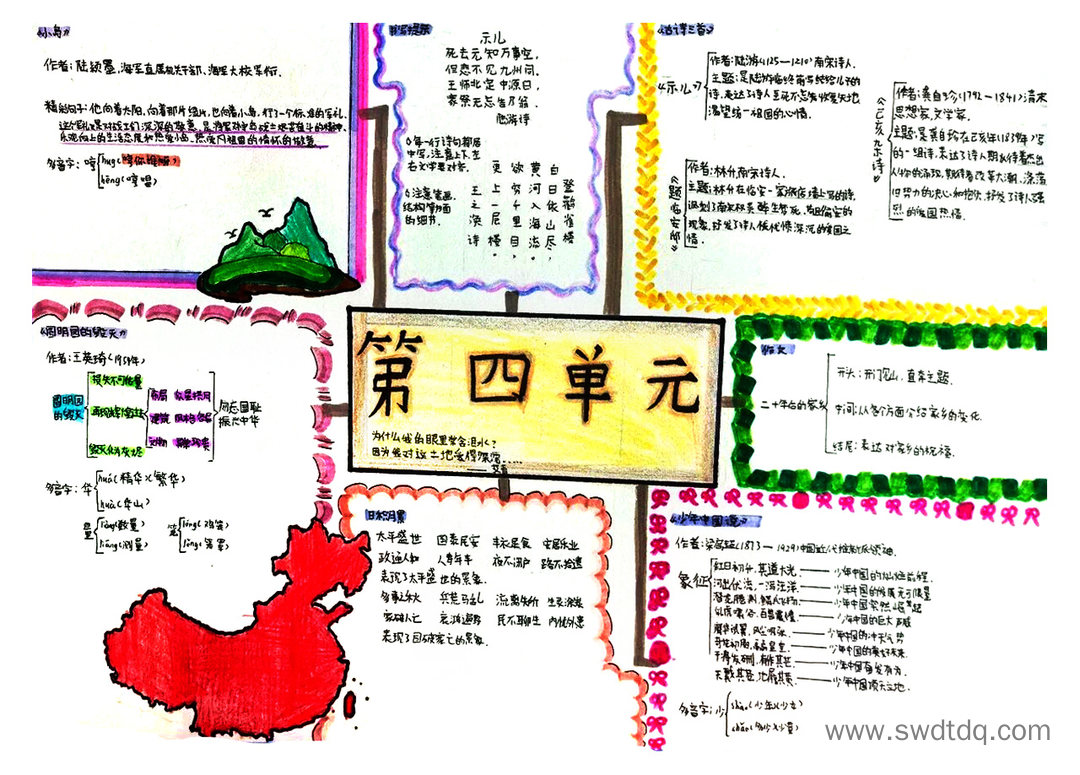 《小岛》
作者:陆颖墨,海军直属机关干部、海军大校军衔。
精彩句子:他向着太阳,向着那片绿,也向着小岛,行了一个标准的军礼。
多音字:哼
hēng(哼唱)
书写提示
示儿
死去元知万事空,
但悲不见九州同。
王师北定中原日,
家祭无忘告乃翁。
陆游诗
①每一行诗句都居
中写,注意上下、左
右文字要对齐。
②注意笔画、
结构等方面
的细节。
白日依山尽,
黄河入海流。
欲穷千里目,
更上一层楼。
王之涣诗
登鹳雀楼
《古诗三首》
《示儿》
作者:陆游(1125—1210)南宋诗人。
主题:是陆游临终前写给儿子的
诗,表达了诗人至死不忘收复失地
渴望统一祖国的心情。
《题临安邸》
作者:林升南宋诗人。
主题:林升在临安一家旅店墙上写的诗,
现象,抒发了诗人忧深沉的爱国之
情。
《己亥杂诗》
作者:龚自珍(1792—1841)清末
思想家,文学家。
主题:是龚自珍在己亥年(1839年)写
的一组诗,表达了诗人期待着杰出
人才的涌现,期待着改革大潮,涤荡
旧势力的决心和抱负,抒发了诗人强
烈的爱国热情。
《圆明园的毁灭》
作者:王英琦(1954年)
圆明园
的毁灭
损失不可估量
再现辉煌过往
毁灭化为灰烬
布局 众星拱月
建筑 风格各异
文物
勿忘国耻
振兴中华
多音字:华
huá(精华)(繁华)
huà(华山)
量
liàng(数量)
liáng(测量)
第四单元
为什么我的眼里常含泪水?
因为我对这土地爱得深沈……
——艾青
作文
二十年后的家乡
开头:开门见山,直奔主题。
中间:从各个方面介绍家乡的变化。
结尾:表达对家乡的祝福。
日积月累
太平盛世 国泰民安 丰衣足食 安居乐业
政通人和 人寿年丰 夜不闭户 路不拾遗
表现了太平盛世的景象。
多事之秋 兵荒马乱 流离失所 生灵涂炭
家破人亡 哀鸿遍野 民不聊生 内忧外患
表现了国破家亡的景象。
《少年中国说》
作者:梁启超(1873—1929)中国近代维新派领袖。
象征
红日初升,其道大光。——少年中国的灿烂前程
河出伏流,一泻汪洋。——少年中国的发展无可限量
潜龙腾渊,鳞爪飞扬。——少年中国突然崛起
乳虎啸谷,百兽震惶。——少年中国的巨大声威
鹰隼试翼,风尘吸张。——少年中国的冲天气势
奇花初胎,矞矞皇皇。——少年中国的美好未来
干将发硎,有作其芒。——少年中国奋发有为
天戴其苍,地履其黄。——少年中国顶天立地。
多音字:少
shào(少年)(少女)
shǎo(多少)(少量)
www.swdtdq.com